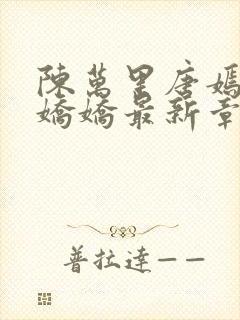 陳萬里唐嫣
嬌嬌最新章
普拉達——